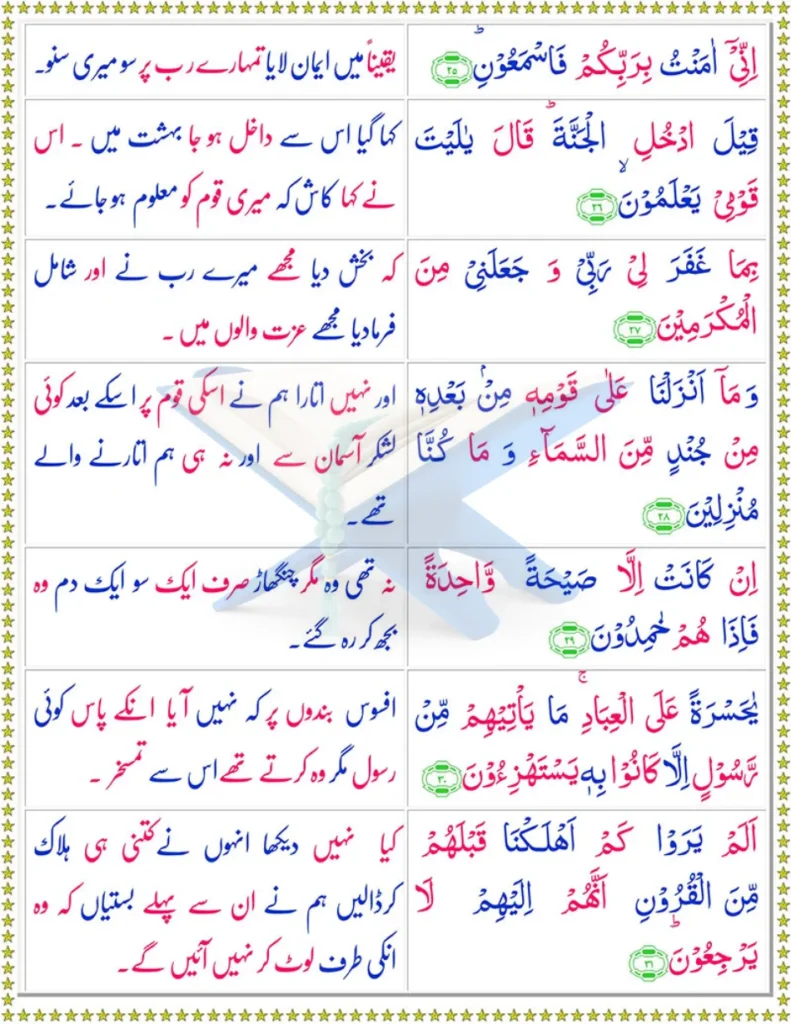 اِنِّیۡۤ اٰمَنۡتُ بِرَبِّكُمۡ فَاسۡمَعُوۡنِؕ ﴿۲۵﴾
یقیناً میں ایمان لایا تمہارے رب پر سو میری سنو۔
قِیۡلَ ادۡخُلِ الۡجَـنَّةَ ؕ قَالَ یٰلَیۡتَ
قَوۡمِیۡ یَعۡلَمُوۡنَۙ ﴿۲۶﴾
کہا گیا اس سے داخل ہو جا بہشت میں ۔ اس
نے کہا کاش کہ میری قوم کو معلوم ہو جائے۔
بِمَا غَفَرَ لِیۡ رَبِّیۡ وَ جَعَلَنِیۡ مِنَ
الۡمُكۡرَمِیۡنَ ﴿۲۷﴾
کہ بخش دیا مجھے میرے رب نے اور شامل
فرمادیا مجھے عزت والوں میں ۔
وَ مَاۤ اَنۡزَلۡنَا عَلٰی قَوۡمِهٖ مِنۡۢ بَعۡدِهٖ
مِنۡ جُنۡدٍ مِّنَ السَّمَآءِ وَ مَا كُنَّا
مُنۡزِلِیۡنَ ﴿۲۸﴾
اور نہیں اتارا ہم نے اسکی قوم پر اسکے بعد کوئی
لشکر آسمان سے اور نہ ہی ہم اتارنے والے
تھے۔
اِنۡ كَانَتۡ اِلَّا صَیۡحَةً وَّاحِدَةً
فَاِذَا هُمۡ خٰمِدُوۡنَ ﴿۲۹﴾
نہ تھی وہ مگر چنگھاڑ صرف ایک سو ایک دم وہ
بجھ کر رہ گئے۔
یٰحَسۡرَةً عَلَی الۡعِبَادِ ۚ مَا یَاۡتِیۡهِمۡ مِّنۡ
رَّسُوۡلٍ اِلَّا كَانُوۡا بِهٖ یَسۡتَهۡزِءُوۡنَ ﴿۳۰﴾
افسوس بندوں پر کہ نہیں آیا انکے پاس کوئی
رسول مگر وہ کرتے تھے اس سے تمسخر ۔
اَلَمۡ یَرَوۡا كَمۡ اَهۡلَـكۡنَا قَبۡلَهُمۡ
مِّنَ الۡقُرُوۡنِ اَنَّهُمۡ اِلَیۡهِمۡ لَا
یَرۡجِعُوۡنَؕ ﴿۳۱﴾
کیا نہیں دیکھا انہوں نے کتنی ہی ہلاک
کرڈالیں ہم نے ان سے پہلے بستیاں کہ وہ
انکی طرف لوٹ کر نہیں آئیں گے۔